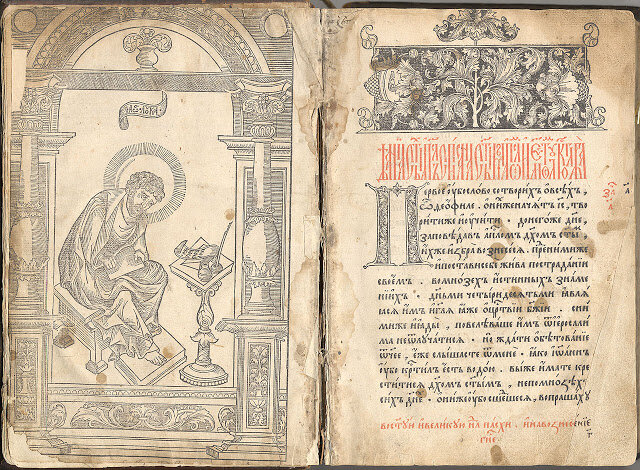 А ЛꙊКА
Первое ѹбо слово сотворихъ ѡ всѣхъ,
ѽ Ѳеофиле. ѡ нихже начатъ іс, тво
рити же и ѹчити. до негоже дне,
заповѣдавъ апломъ дхомъ сты
ихже избра вознесеся. пред нимиже
и постави себе жива по страданіи
своемъ. во мнозех истинных знаме
ниих. дньми четыридесятьми являя
ся имъ, и гля яже ѡ цртвіи бжіи. с ни
миже и ꙗды, повелѣваше имъ ѿ іерсали
ма не ѿлѹчатися. но ждати обѣтованіе
ѿчее, еже слышасте ѿ мене. ꙗко іѡаннъ
ѹбо крстилъ есть водою. вы же имате кре
ститися дхомъ стымъ, не по мнозѣх
сихъ дне. они же ѹбо сошедшеся, вопрашахѹ